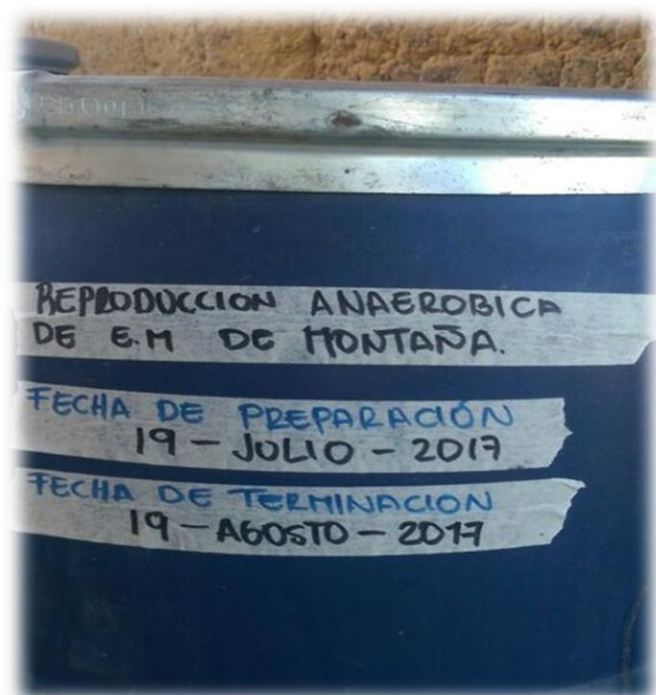 REPRODUCCION ANAEROBICA
DE E.M DE MONTAÑA.
FECHA DE PREPARACIÓN
19 - JULIO - 2017
FECHA DE TERMINACION
19 - AGOSTO - 2017